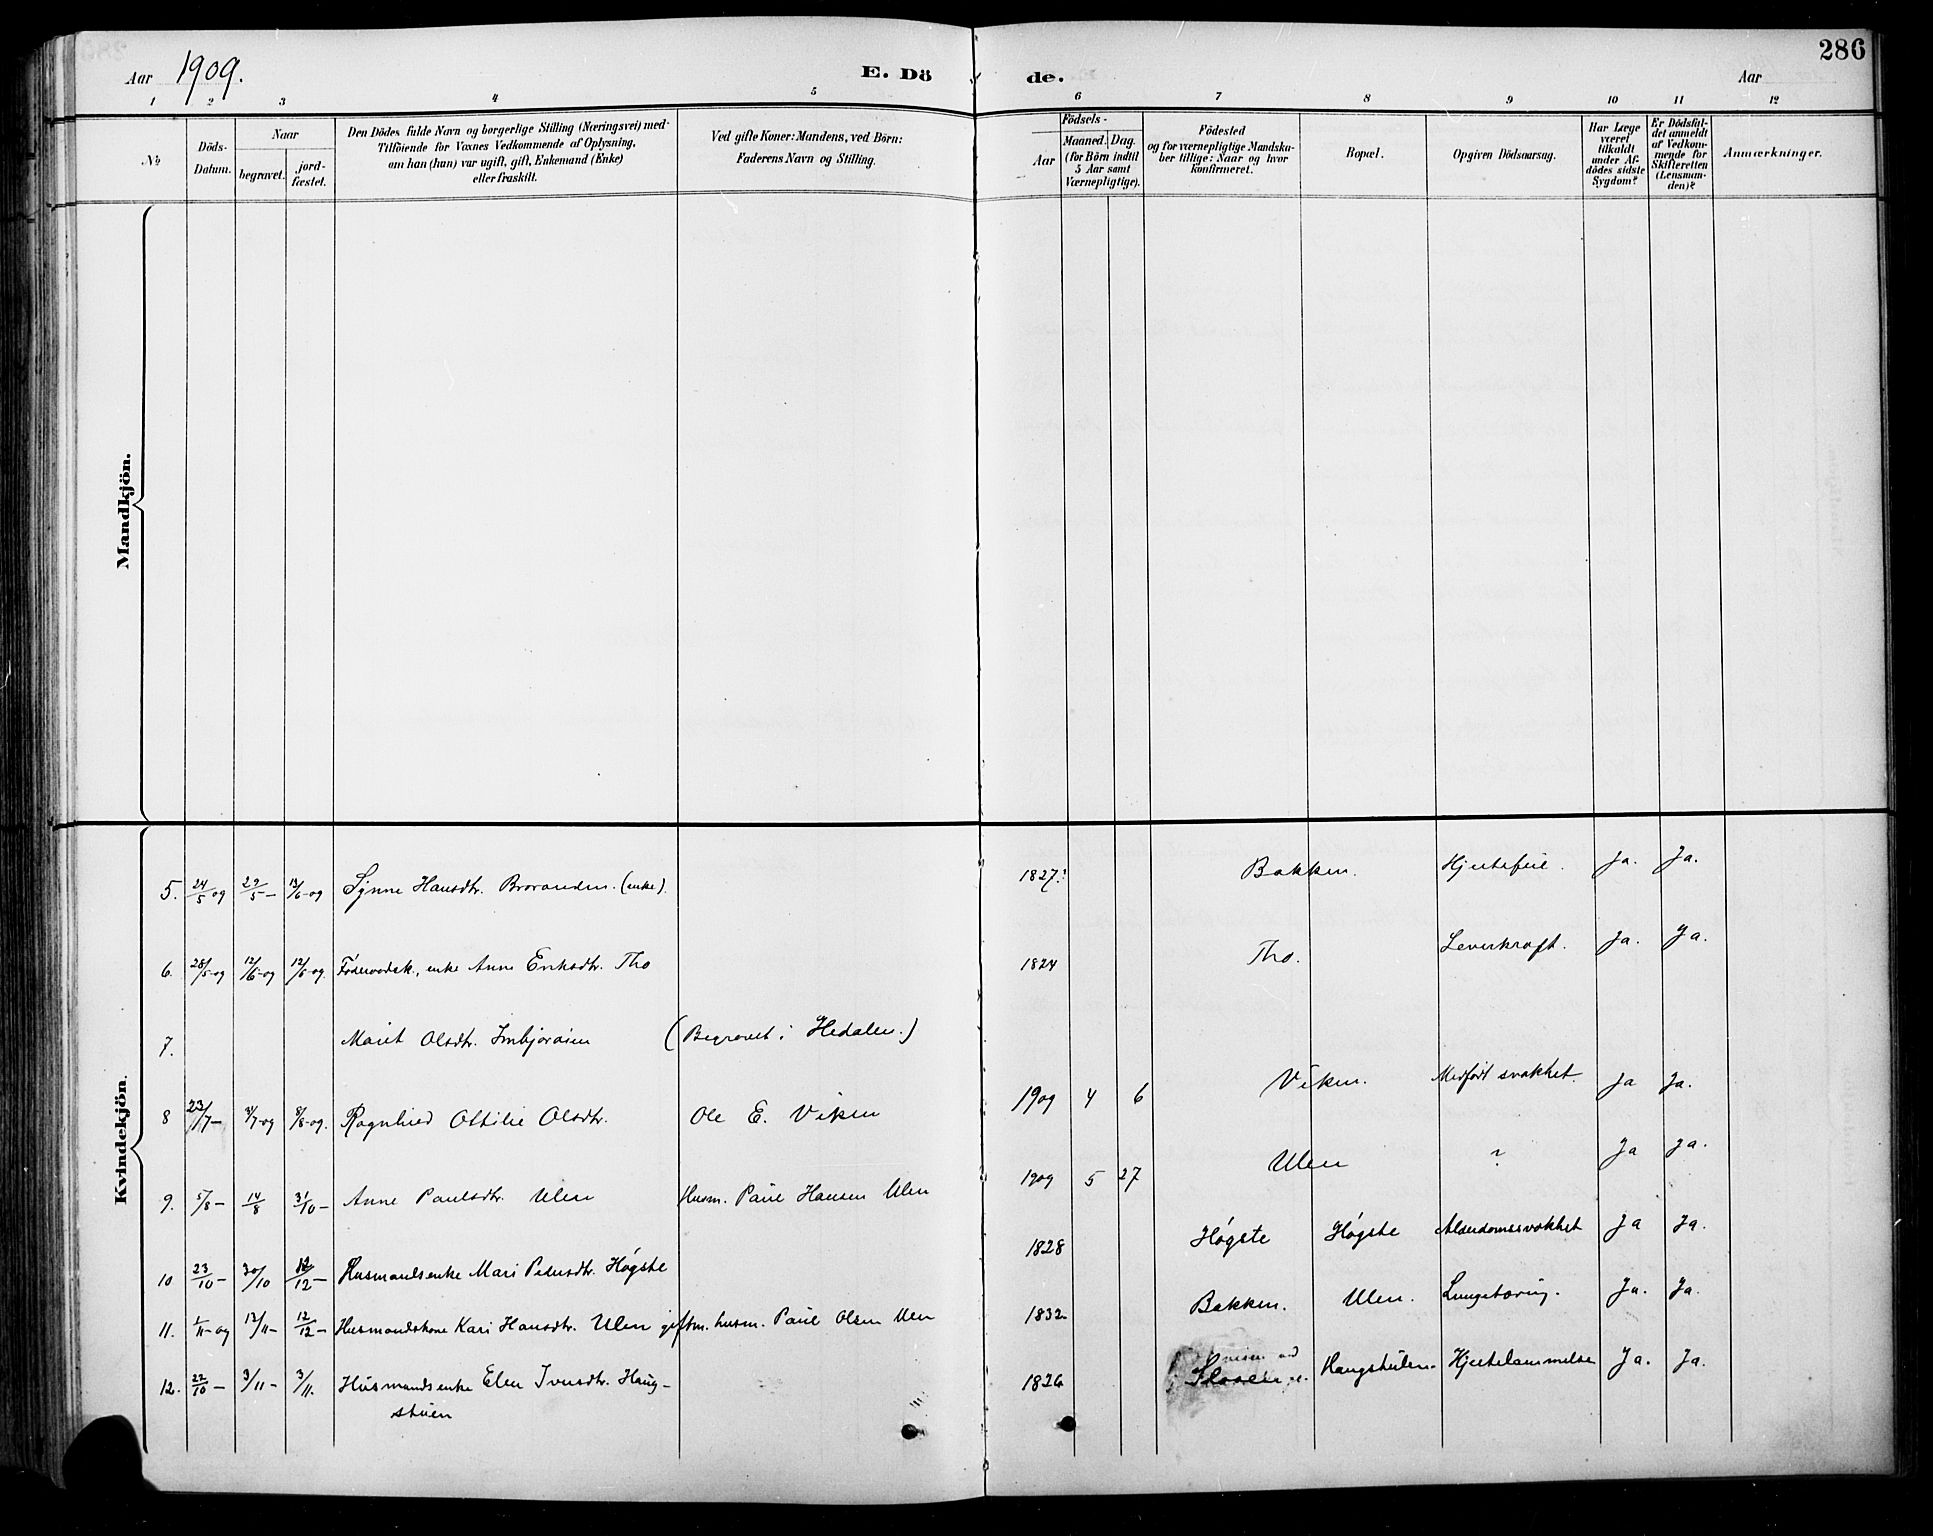 286
Aar 1909.
E. Dö
de.
Aar
1 2 3 4 5 6 7 8 9 10 11 12
No
Döds-
Datum.
Naar
begravet.
jord-
fæstet.
Den Dödes fulde Navn og borgerlige Stilling (Næringsvei) med
Tilföiende for Voxnes Vedkommende af Oplysning,
om han (hun) var ugift, gift, Enkemand (Enke)
eller fraskilt.
Ved gifte Koner: Mandens, ved Börn:
Faderens Navn og Stilling.
Födsels-
Aar
Maaned. Dag.
(for Börn indtil
5 Aar samt
Værnepligtige).
Födested
og for værnepligtige Mandska-
ber tillige: Naar og hvor
konfirmeret.
Bopæl.
Opgiven Dödsaarsag.
Har Læge
været
tilkaldt
under Af-
dödes sidste
Sygdom?
Er Dödsfal-
det anmeldt
af Vedkom-
mende for
Skifteretten
(Lensman-
den)?
Anmærkninger.
Mandkjön.
Kvindekjön.
5. 24/5 09 29/5 – 13/6-09 Synne Hansdtr. (enke). 1827. Bakken. Hjertefeil. Ja. Ja.
6. 28/5-09 12/6-09 12/6-09. enke Anne Eriksdtr. Tho 1824 Tho. Leverkræft. Ja. Ja.
7. Marit Olsdtr. (Begravet i Hedalen.)
8 23/7 – 31/7-09 8/8-09. Ragnhild Ottilie Olsdtr. Ole E. Viken 1909 4 6 Viken. Medfødt svakhet. Ja Ja.
9. 5/8 – 14/8 31/10 – Anne Paulsdtr. Ulen Husm. Paul Hansen Ulen 1909 5 27 Ulen ? Ja Ja.
10 23/10 – 30/10 12/12 – Husmandsenke Mari Pedersdtr. Høgste 1828 Høgste Høgste Alderdomssvakhet Ja Ja.
11. 1/11-09 12/11 – 12/12 – Husmandskone Kari Hansdtr. Ulen gift m. husm. Paul Olsen Ulen 1832 Bakken. Ulen. Ja. Ja.
12. 22/10 – 3/11 – 3/11. Husmandsenke Elen Iversdtr. Haug-
stuen 1826 Haugstuen Hjertelammelse Ja. Ja.